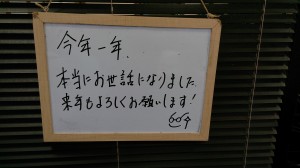 今年一年、
本当にお世話になりました
来年もよろしくお願いします!